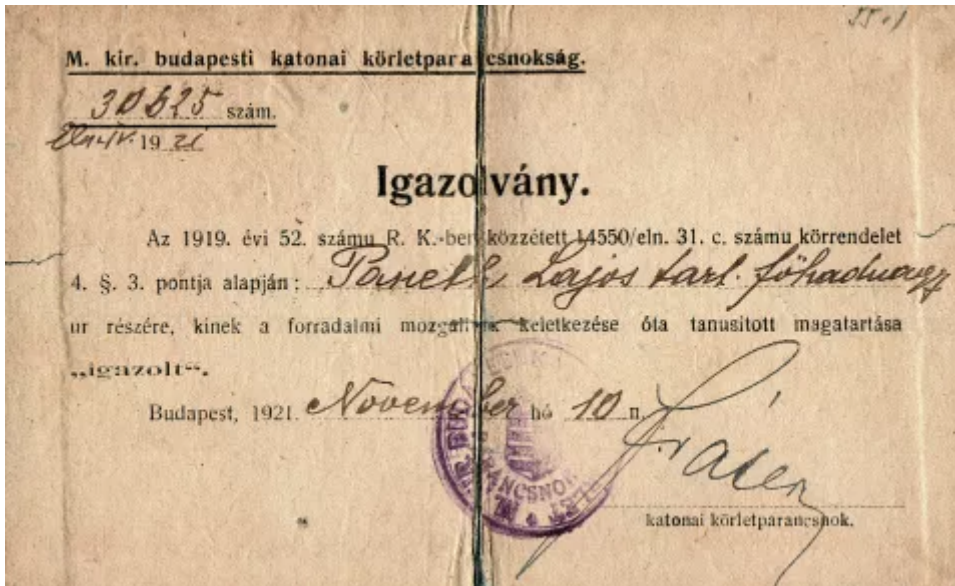 II.1
M. kir. budapesti katonai körletparancsnokság.
30625 szám.
Eln.IV. 19 21
Igazolvány.
Az 1919. évi 52. számu R. K.-ben közzétett 14550/eln. 31. c. számu körrendelet
4. §. 3. pontja alapján: Paneth Lajos tart. főhadnagy
ur részére, kinek a forradalmi mozgalmak keletkezése óta tanusitott magatartása
„igazolt“.
Budapest, 1921. November hó 10 n.
katonai körletparancsnok.